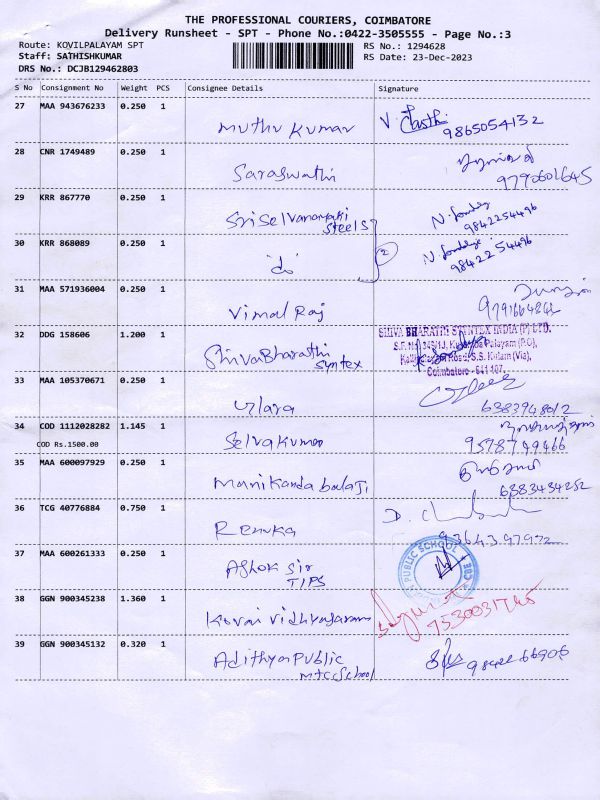 THE PROFESSIONAL COURIERS, COIMBATORE
Delivery Runsheet - SPT - Phone No.:0422-3505555 - Page No.:3
Route: KOVILPALAYAM SPT RS No.: 1294628
Staff: SATHISHKUMAR RS Date: 23-Dec-2023
DRS No.: DCJB129462803
S No Consignment No Weight PCS Consignee Details Signature
27 MAA 943676233 0.250 1 Muthu Kumar 9865054132
28 CNR 1749489 0.250 1 Saraswathi
9790601645
29 KRR 867770 0.250 1 Sri Selvanayaki
Steels 9842254496
30 KRR 868089 0.250 1 "do" 2 9842254496
31 MAA 571936004 0.250 1 Vimal Raj
32 DDG 158606 1.200 1 ShivaBharathi
Syntex
SHIVA BHARATH SYNTEX INDIA (P) LTD.
Coimbatore - 641 107.
33 MAA 105370671 0.250 1
6383948012
34 COD 1112028282 1.145 1 Selvakumar
COD Rs.1500.00 9578749466
35 MAA 600097929 0.250 1 Manikanda balaji
6383434252
36 TCG 40776884 0.750 1 Renuka
37 MAA 600261333 0.250 1 Ashok Sir
TIPS
PUBLIC SCHOOL
38 GGN 900345238 1.360 1 Kovai Vidhyasaram
7530031745
39 GGN 900345132 0.320 1 Adithya Public
School